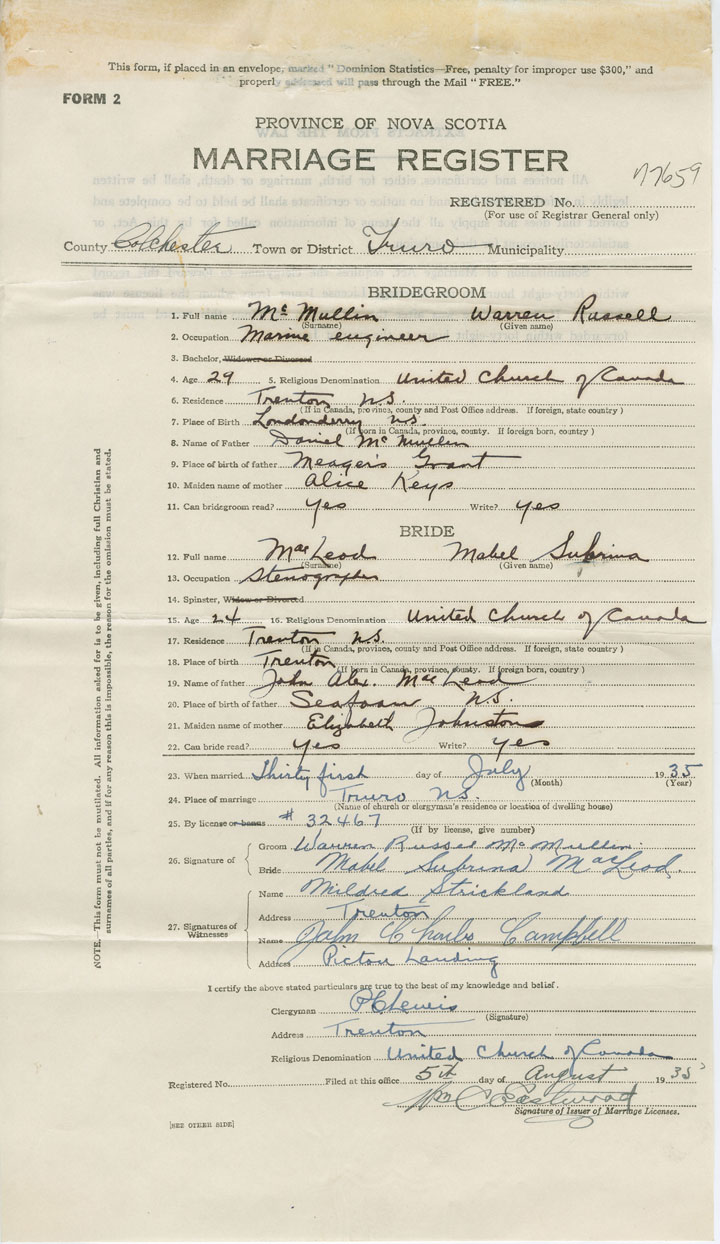 This form, if placed in an envelope, marked "Dominion Statistics—Free, penalty for improper use $300," and
properly addressed will pass through the Mail "FREE."
FORM 2
PROVINCE OF NOVA SCOTIA
MARRIAGE REGISTER
REGISTERED No.
(For use of Registrar General only)
County Colchester Town or District Truro Municipality
BRIDEGROOM
1. Full name McMullin Warren Russell
(Surname) (Given name)
2. Occupation Marine engineer
3. Bachelor, Widower or Divorced
4. Age 29 5. Religious Denomination United Church of Canada
6. Residence Trenton N.S.
(If in Canada, province, county and Post Office address. If foreign, state country)
7. Place of Birth Londonderry N.S.
(If born in Canada, province, county. If foreign born, country)
8. Name of Father Daniel McMullin
9. Place of birth of father Meager's Grant
10. Maiden name of mother Alice Keys
11. Can bridegroom read? yes Write? yes
BRIDE
12. Full name MacLeod Mabel Subrina
(Surname) (Given name)
13. Occupation Stenographer
14. Spinster, Widow or Divorced
15. Age 24 16. Religious Denomination United Church of Canada
17. Residence Trenton N.S.
(If in Canada, province, county and Post Office address. If foreign, state country)
18. Place of birth Trenton
(If born in Canada, province, county. If foreign born, country)
19. Name of father John Alex. MacLeod
20. Place of birth of father Seafoam N.S.
21. Maiden name of mother Elizabeth Johnston
22. Can bride read? yes Write? yes
23. When married Thirty first day of July 1935
(Month) (Year)
24. Place of marriage Truro N.S.
(Name of church or clergyman's residence or location of dwelling house)
25. By license or banns # 32467
(If by license, give number)
26. Signature of
Groom Warren Russel McMullin.
Bride Mabel Subrina MacLeod.
27. Signatures of Witnesses
Name Mildred Strickland
Address Trenton
Name John Charles Campbell
Address Pictou Landing
I certify the above stated particulars are true to the best of my knowledge and belief.
Clergyman
(Signature)
Address Trenton
Religious Denomination United Church of Canada
Registered No. Filed at this office 5th day of August 1935
Wm C Eastwood
Signature of Issuer of Marriage Licenses.
[SEE OTHER SIDE]
NOTE.—This form must not be mutilated. All information asked for is to be given, including full Christian and
surnames of all parties, and if for any reason this is impossible, the reason for the omission must be stated.